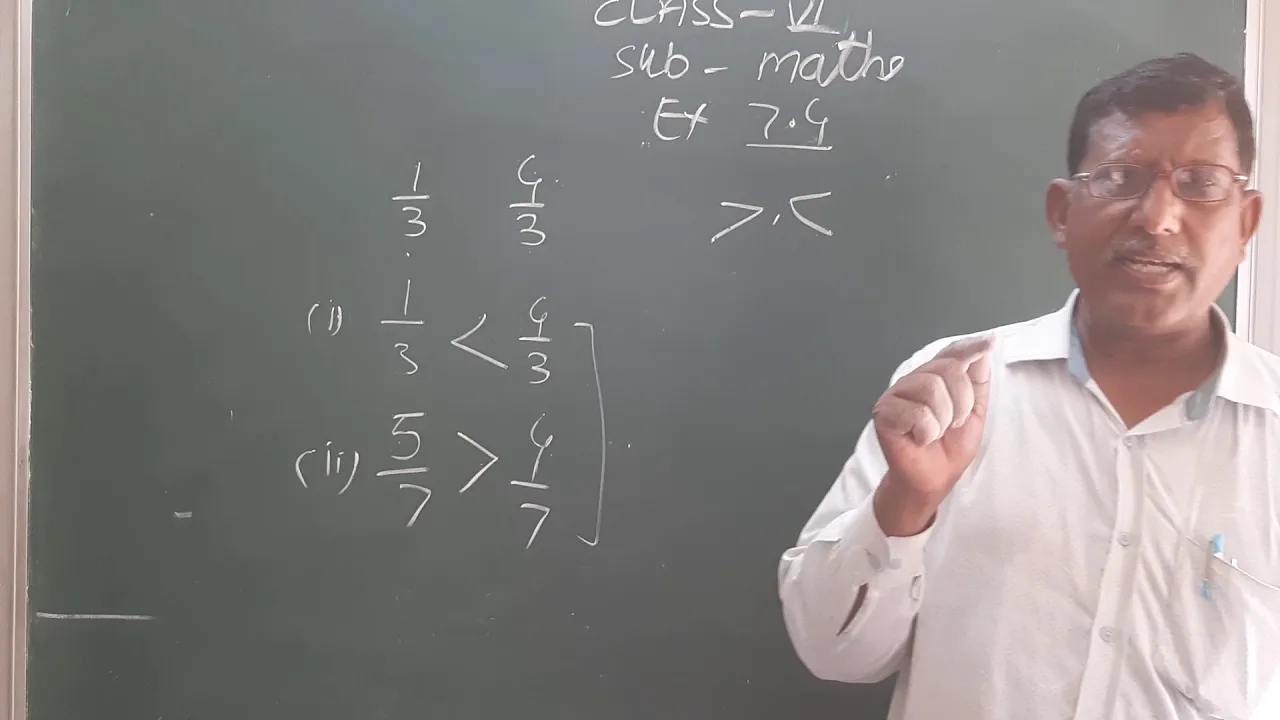 CLASS - VI
Sub - maths
Ex 7.4
1/3 4/3 >, <
(i) 1/3 < 4/3
(ii) 5/7 > 4/7